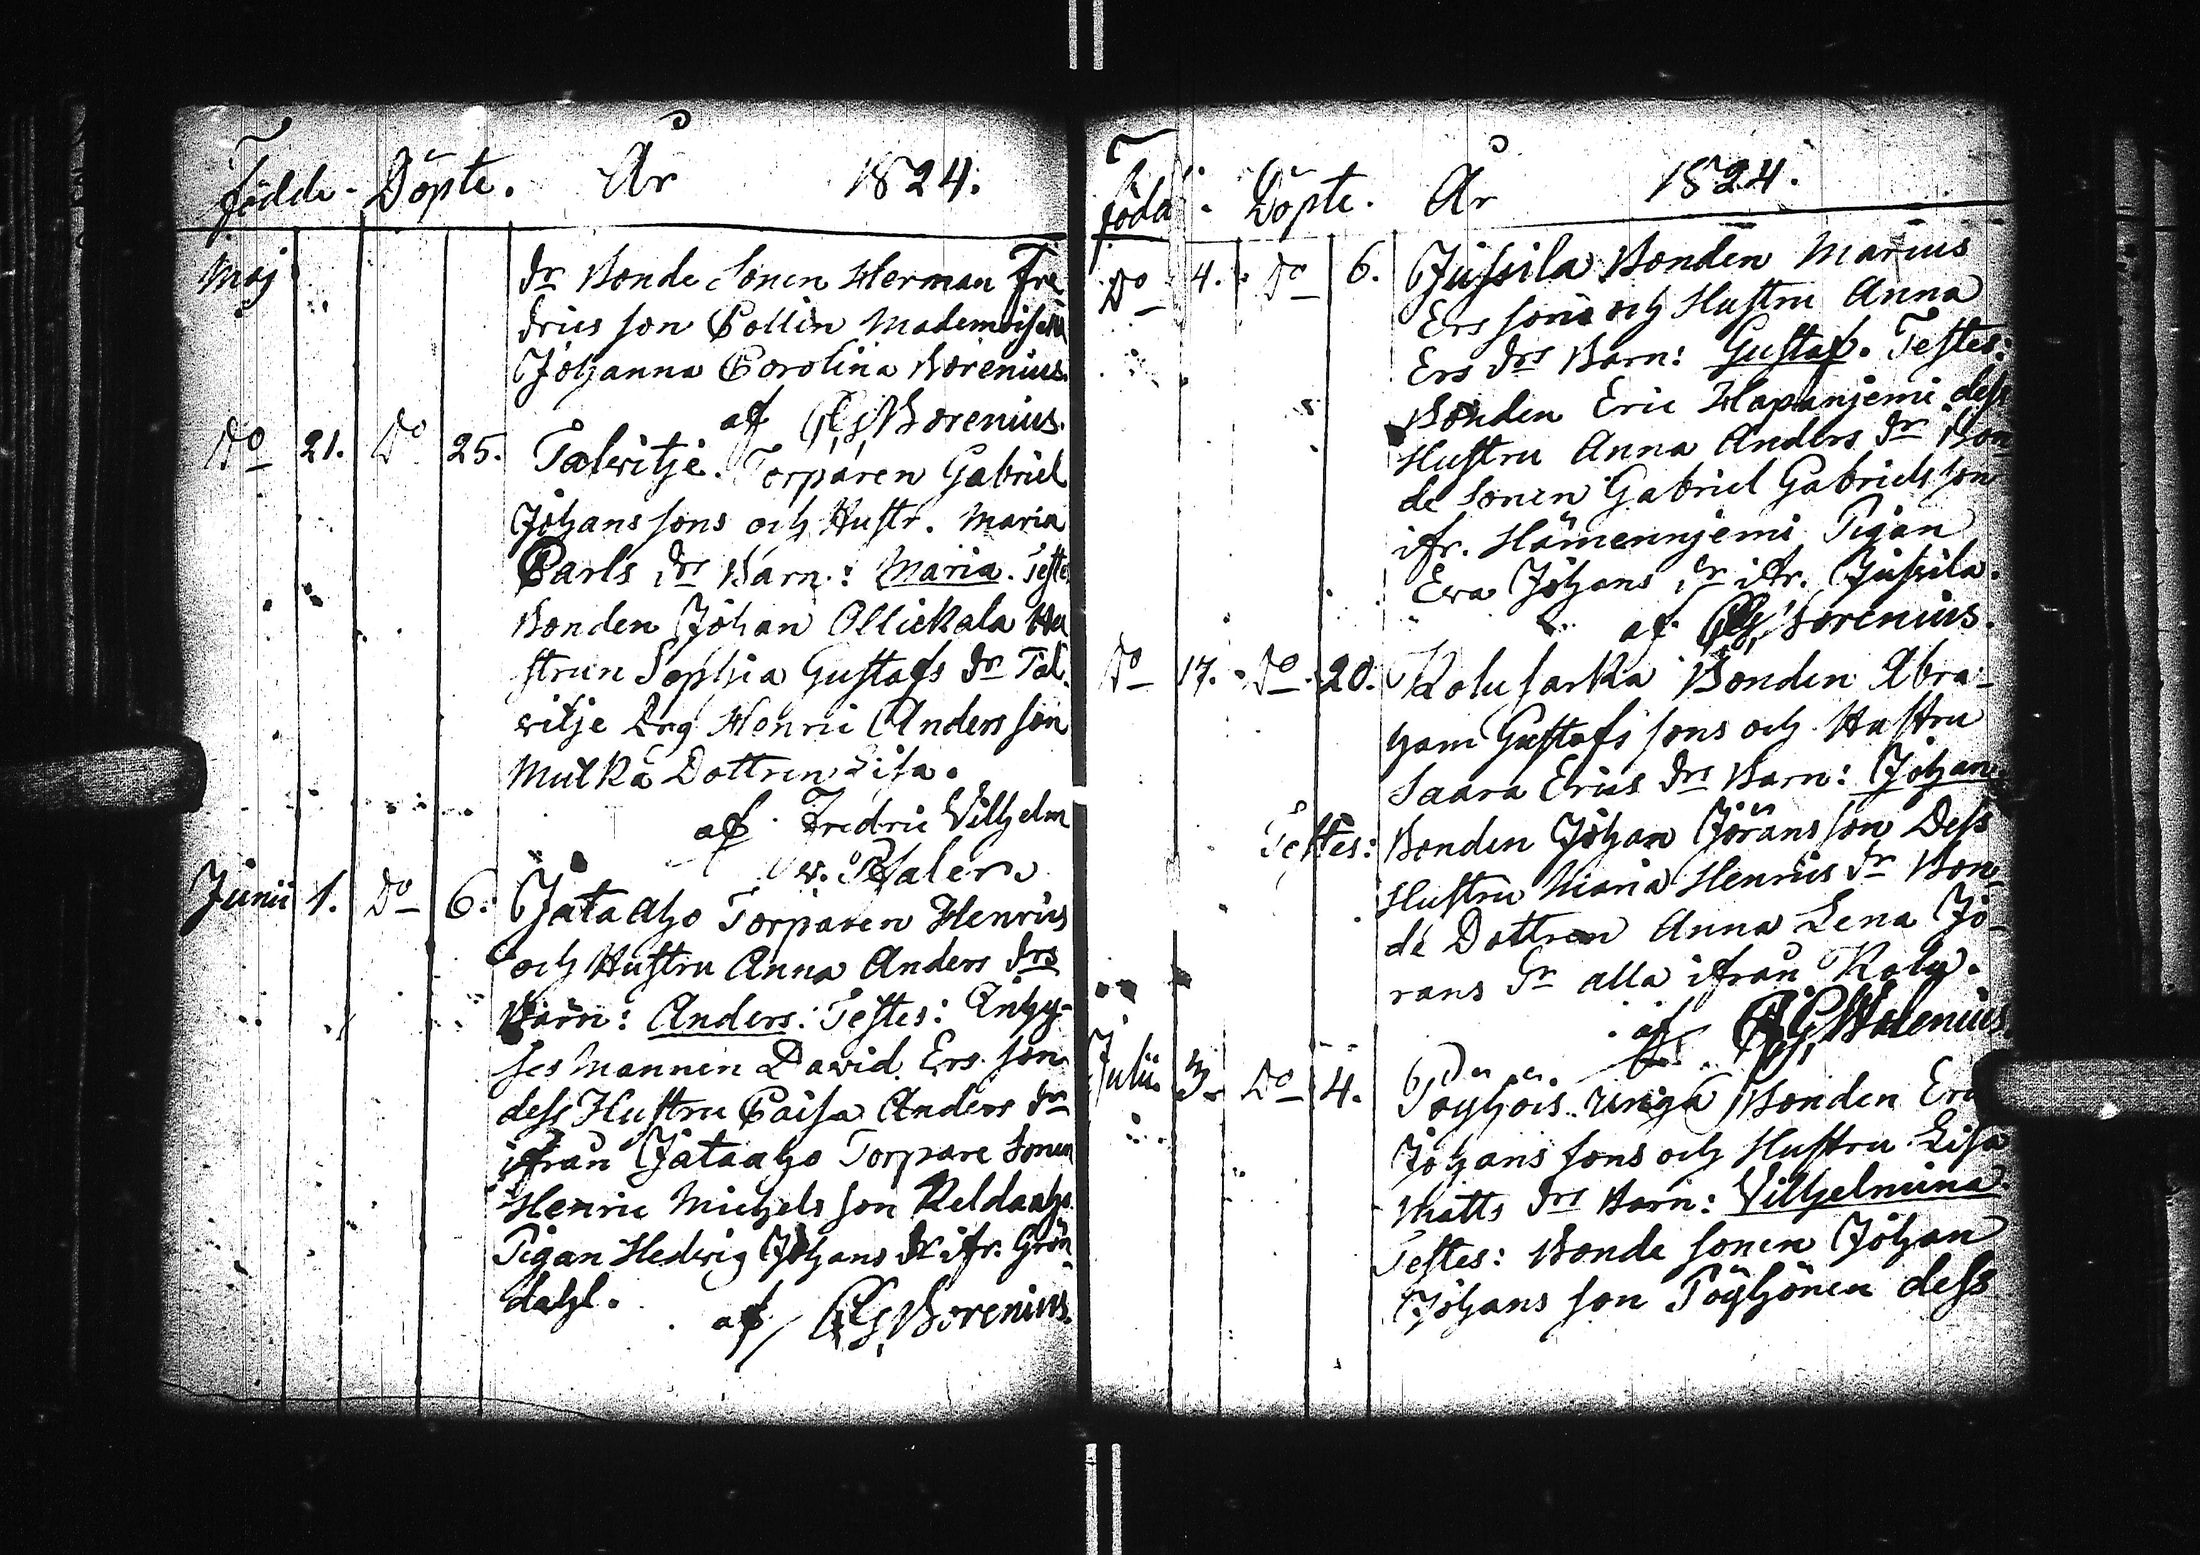 Födde. Döpte. År 1824.
Maj dr Bonde Sonen Herman Fre
drics son Collin Mademoisell
Johanna Carolina Borenius.
af CG Borenius.
Do 21. Do 25. Talvitje. Torparen Gabriel
Johans sons och Hustr. Maria
Carls drs Barn: Maria. Teste
Bonden Johan Ollickala Hu
strun Sophia Gustafs dr Tal
vitje Drg Henric Anders son
Mutka Dottren Lisa.
af Fredric Vilhelm
v. Pfaler
Junii 1. Do 6. Jataaho Torparen Henrics
och Hustru Anna Anders drs
Barn: Anders. Testes: Inhy-
ses Mannen David Ers son
dess Hustru Caisa Anders dr
ifrån Jataaho Torpare Sonen
Henric Michels son Keldaaho
Pigan Hedvig Johans dr ifr. Grön
dahl.
af CG Borenius.
Föda. Döpte. År 1824.
Do 4. Do 6. Jussila Bonden Marius
Ers sons och Hustru Anna
Ers drs Barn: Gustaf. Testes:
Bonden Eric Hapanjemi dess
Hustru Anna Anders dr Bon
de Sonen Gabriel Gabriels son
ifr. Hämennjemi Pigan
Eva Johans dr ifr. Jussila.
af CG Borenius.
Do 17. Do 20. Kolu sarka Bonden Abra-
ham Gustafs sons och Hustru
Saara Erics drs Barn: Johan
Testes: Bonden Johan Jörans son Dess
Hustru Maria Henrics dr Bon
de Dottren Anna Lena Jö-
rans dr alla ifrån Kolu.
af CG Borenius
Julii 3. Do 4. Pöyhöis unga Bonden Eric
Johans sons och Hustru Lisa
Matts drs Barn: Vilhelmina.
Testes: Bonde sonen Johan
Johans son Pöyhönen dess